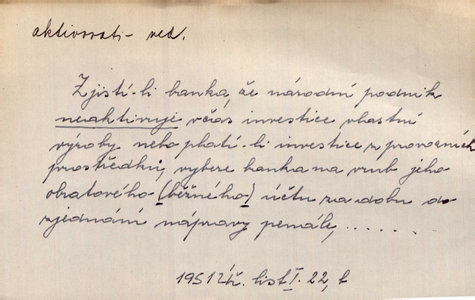 aktivovati - ved.
Zjistí-li banka, že národní podnik
neaktivuje včas investice vlastní
výroby nebo platí-li investice z provozních
prostředků, vybere banka na vrub jeho
obratového (běžného) účtu za dobu do
zjednání nápravy penále, .......
1951 Úř. list I. 22, 6